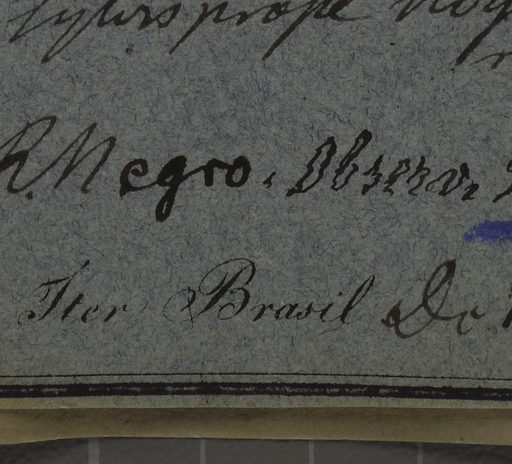 sylvis prope
R. Negro. Observ.
Iter Brasil Dr.